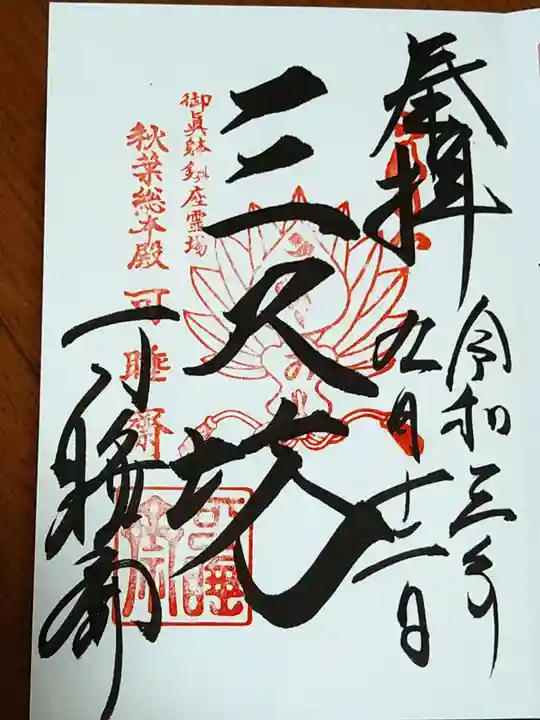 奉拝
令和三年
九月十一日
三尺坊
御眞躰鎮座霊場
秋葉総本殿 可睡齋
可睡斎
可睡